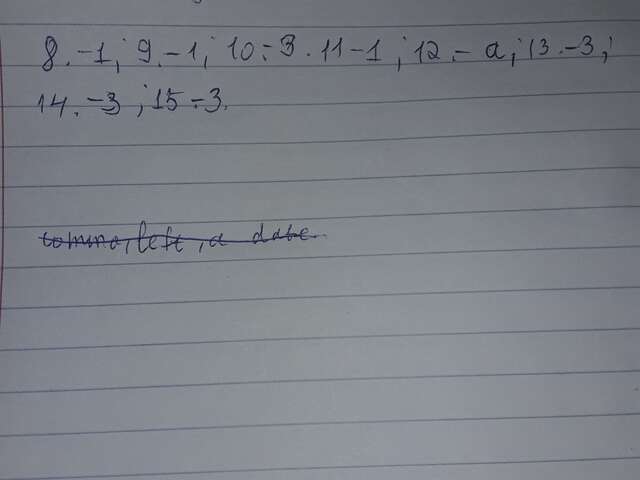 8. -1; 9. -1; 10 - 3. 11 - 1; 12. - a; 13. -3;
14. -3; 15 - 3.
comma, left, a date.